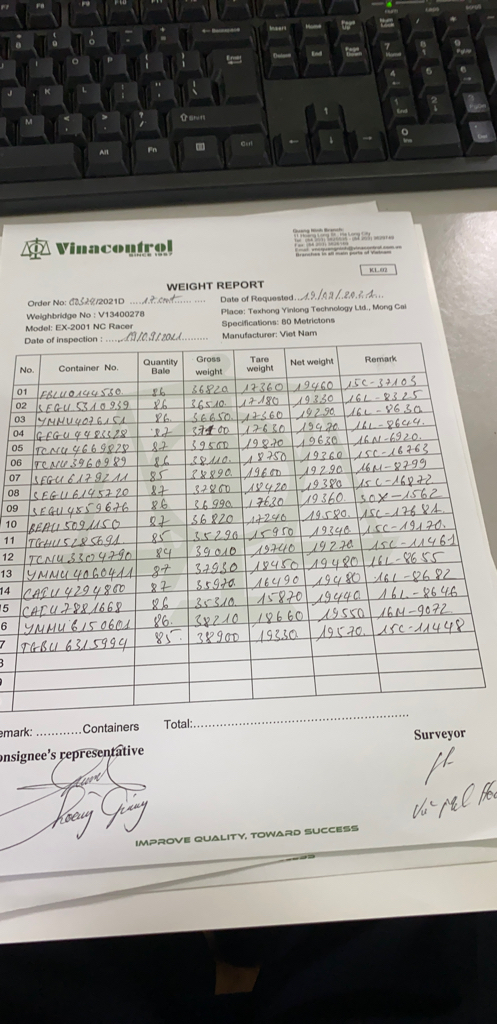 Vinacontrol
SINCE 1957
Quang Ninh Branch:
Branches in all main ports of Vietnam
KL.02
WEIGHT REPORT
Order No: /2021D ....17 cont...........
Date of Requested..19/09/2021...
Weighbridge No : V13400278
Place: Texhong Yinlong Technology Ltd., Mong Cai
Model: EX-2001 NC Racer
Specifications: 80 Metrictons
Date of inspection : .....19/09/2021........
Manufacturer: Viet Nam
No. Container No. Quantity Bale Gross weight Tare weight Net weight Remark
01 86 36820 17360 19460 15C-37103
02 SEGU 5310939 86 36510 17180 19330 16L-8325
03 YMMU4076151 86. 36650 17360 19290 16L-8630
04 87 37100 17630 19470 16L-8644.
05 TCNU 4669828 87 39500 19870 19630 16M-6920.
06 TCNU 5960989 86 38110. 18750 19360 15C-16763
07 SEGU 6179211 85 38890. 19600 19290 16M-8799
08 SEGU 6145220 87 37800 18420 19380 15C-16872
09 SEGU 4859676 86 36990 17630 19360. 50X-1562
10 BEAU 5091150 87 36820 17240 19580. 15C-17681
11 TGHU5285691 85 35290 15950 19340 15C-19170.
12 TCNU 3304790 84 39010 19740 19270 15C-11461
13 YMMU 4060411 87 37930 18450 19480 16L-8655
14 CAIU 4294800 87 35970 16490 19480 16L-8682
15 CAIU 7881668 86 35310. 15870 19440 16L-8646
6 YMMU 6150601 86. 38210 18660 19550 16M-9072
7 TGBU 6315994 85 38900 19330 19570. 15C-11448
8
9
emark: ............Containers Total:..........................................................
onsignee's representative
Surveyor
Hoàng Giang
IMPROVE QUALITY, TOWARD SUCCESS